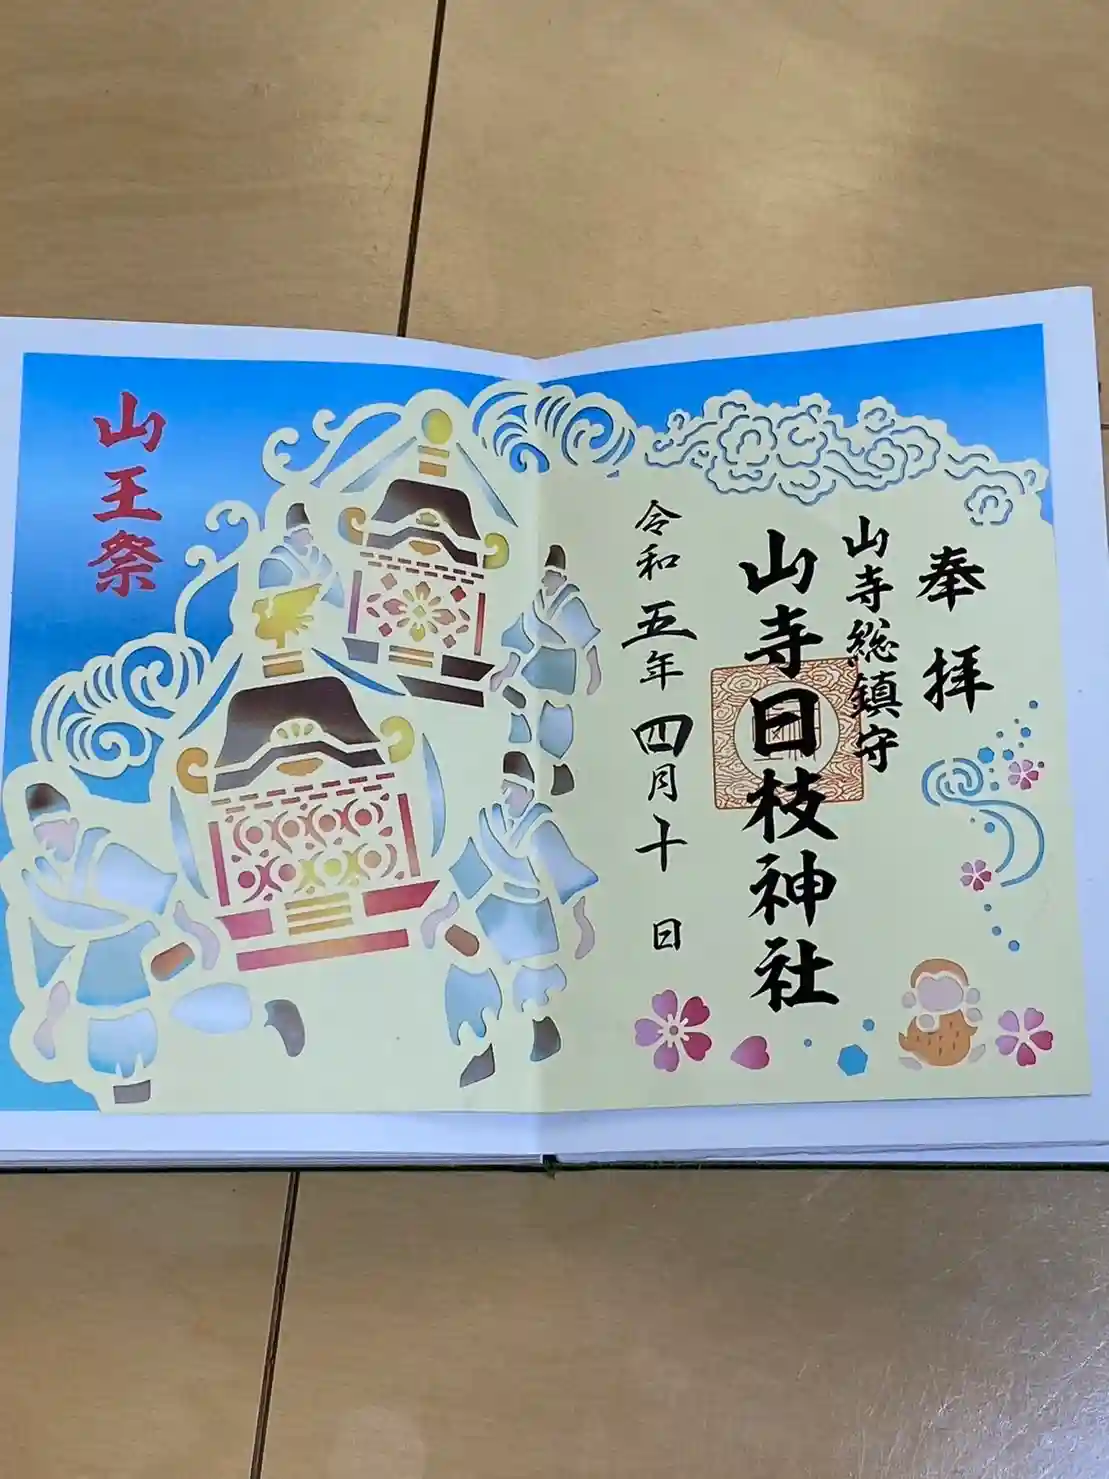 奉拝
山寺総鎮守
山寺日枝神社
令和五年四月十日
山王祭